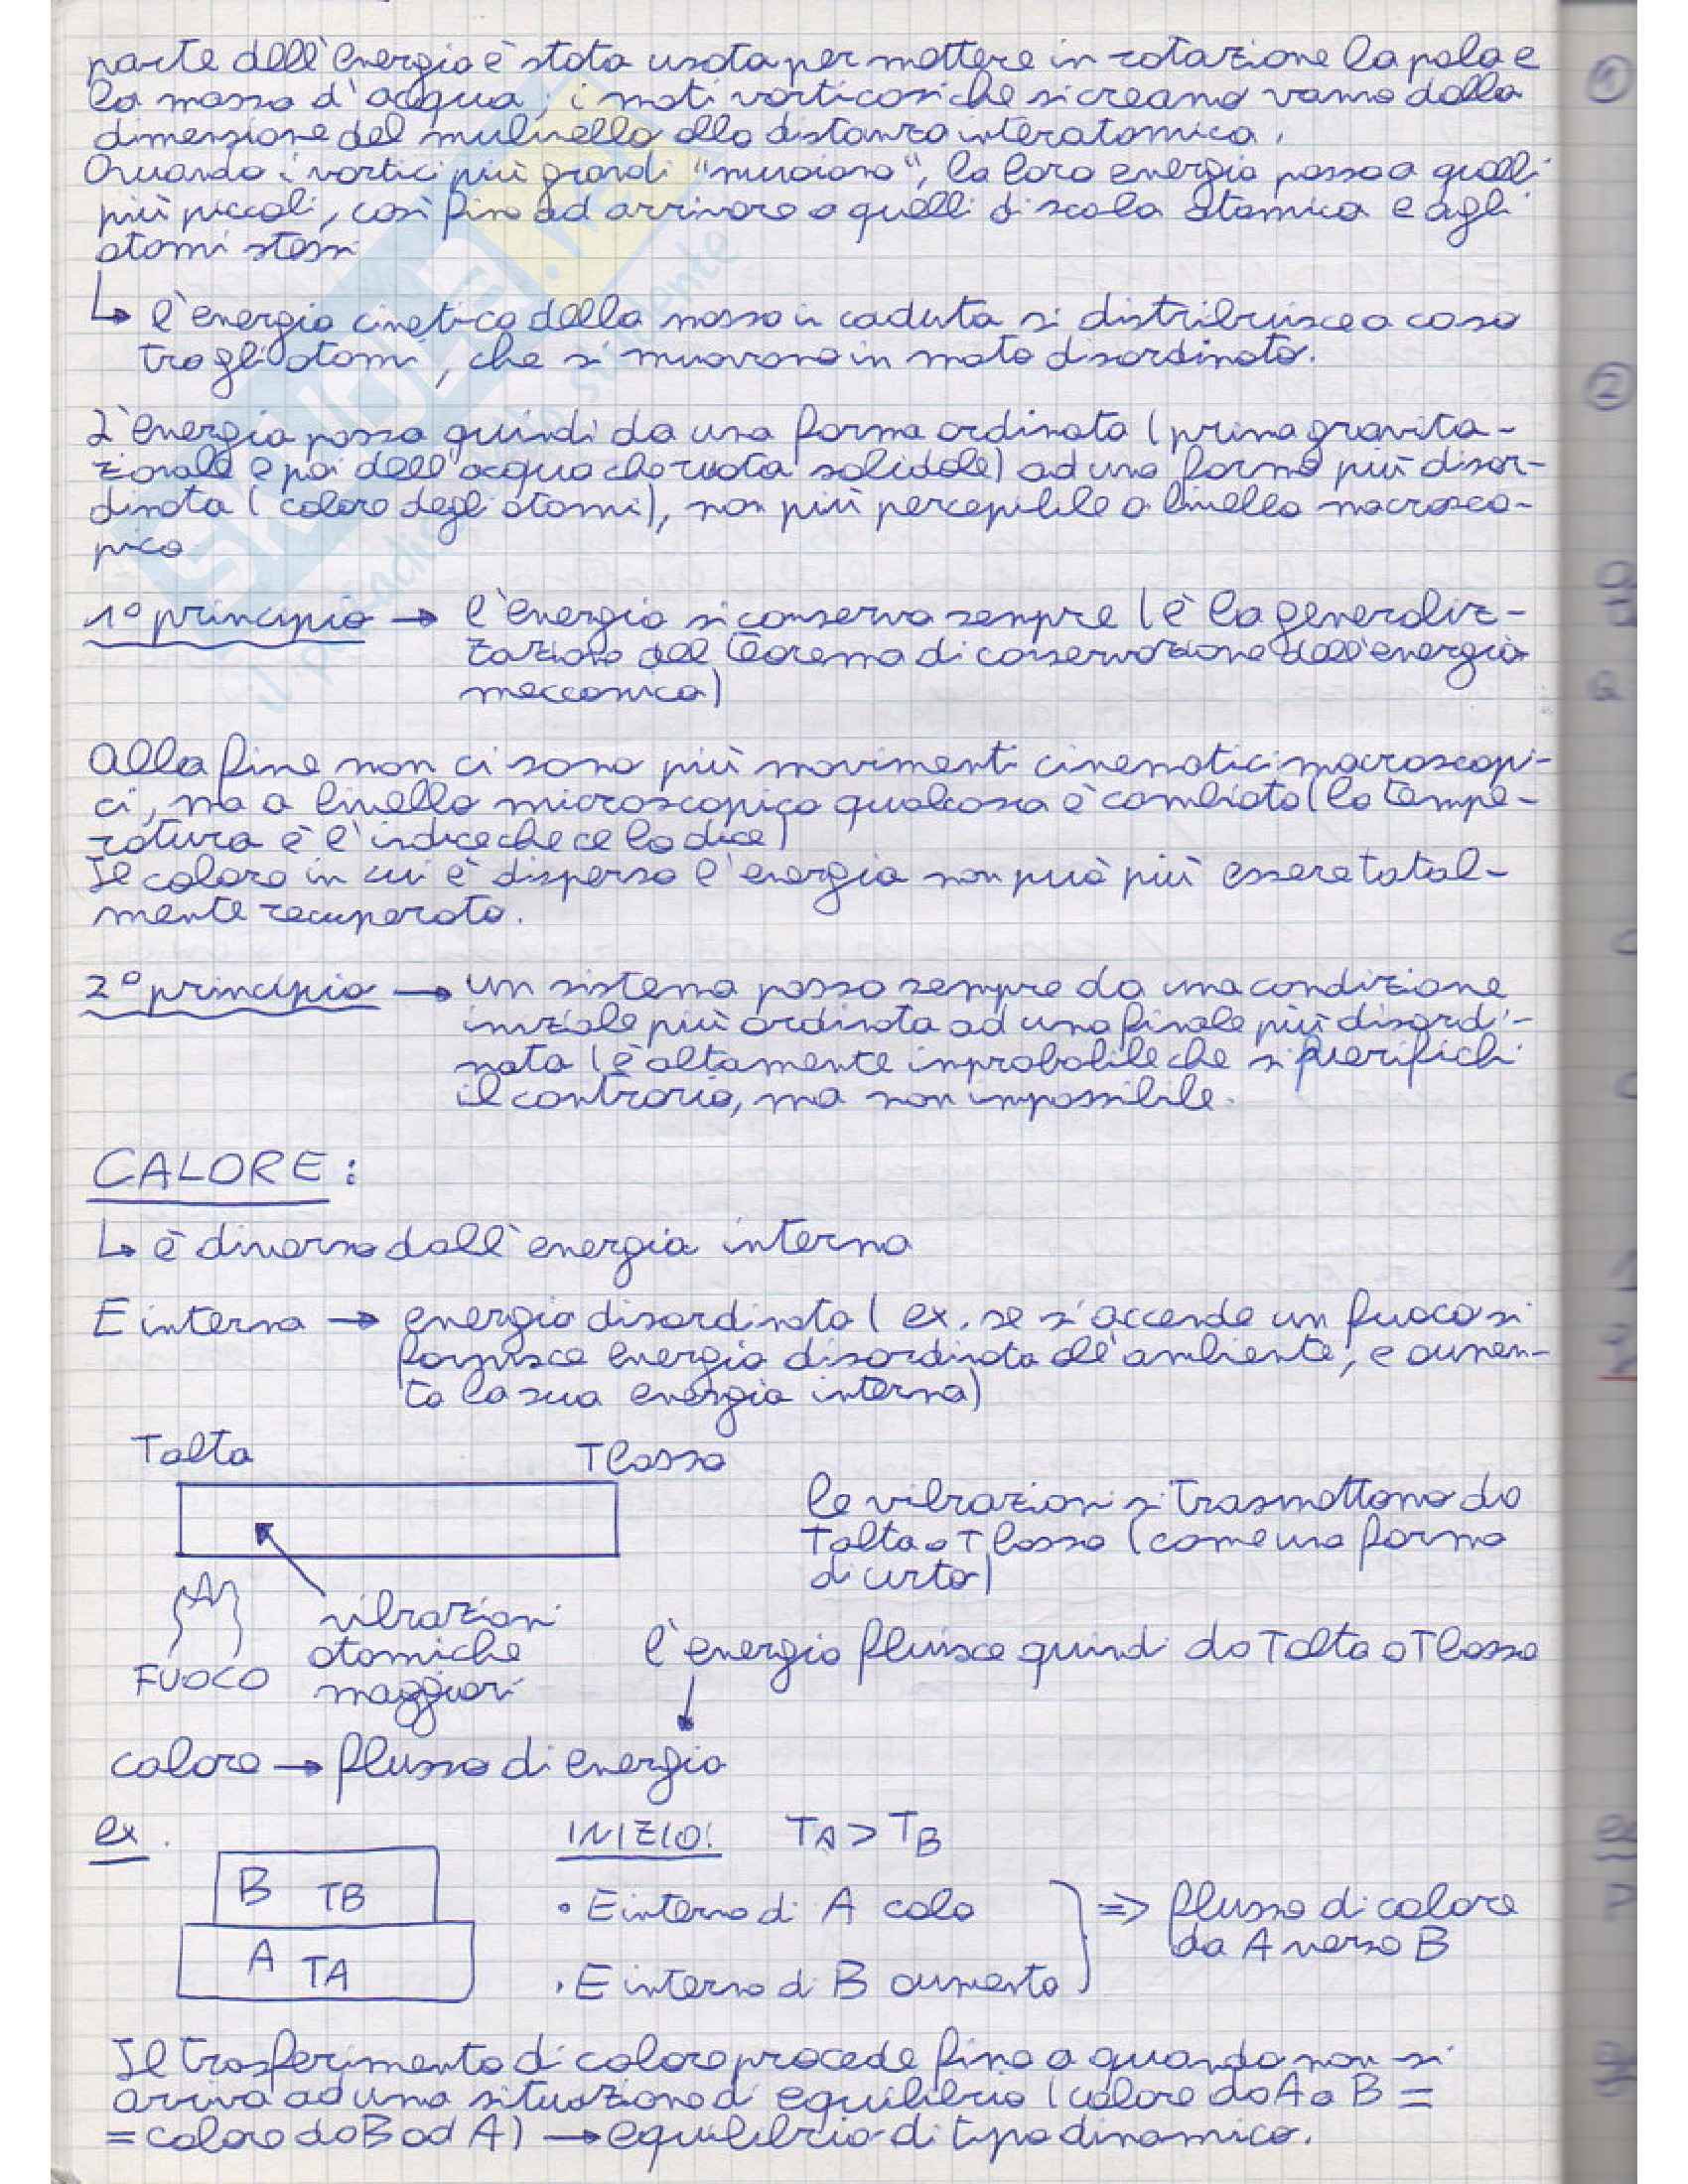 parte dell'energia è stata usata per mettere in rotazione la pala e
la massa d'acqua; i moti vorticosi che si creano vanno dalla
dimensione del mulinello alla distanza interatomica.
Quando i vortici più grandi "muoiono", la loro energia passa a quelli
più piccoli, così fino ad arrivare a quelli di scala atomica e agli
atomi stessi
↳ l'energia cinetica della massa in caduta si distribuisce a caso
tra gli atomi, che si muovono in moto disordinato.
L'energia passa quindi da una forma ordinata (prima gravita-
zionale e poi dell'acqua che ruota solidale) ad una forma più disor-
dinata (calore degli atomi), non più percepibile a livello macrosco-
pico
1° principio → l'energia si conserva sempre (è la generaliz-
zazione del teorema di conservazione dell'energia
meccanica)
Alla fine non ci sono più movimenti cinematici macroscopi-
ci, ma a livello microscopico qualcosa è cambiato (la tempe-
ratura è l'indice che ce lo dice)
Il calore in cui è dispersa l'energia non può più essere total-
mente recuperato.
2° principio → un sistema passa sempre da una condizione
iniziale più ordinata ad una finale più disordi-
nata (è altamente inprobabile che si verifichi
il contrario, ma non impossibile.
CALORE:
↳ è diverso dall'energia interna
E interna → energia disordinata (ex. se s'accende un fuoco si
fornisce energia disordinata all'ambiente, e aumen-
ta la sua energia interna)
T alta T bassa
le vibrazioni si trasmettono da
T alta a T bassa (come una forma
di urto)
vibrazioni
atomiche
maggiori
FUOCO
l'energia fluisce quindi da T alta a T bassa
calore → flusso di energia
ex.
INIZIO: TA > TB
B TB
A TA
• E interna di A cala
• E interna di B aumenta
=> flusso di calore
da A verso B
Il trasferimento di calore procede fino a quando non si
arriva ad una situazione di equilibrio (calore da A a B =
= calore da B ad A) → equilibrio di tipo dinamico.
1
2
SKUOLA
il paradiso dello studente